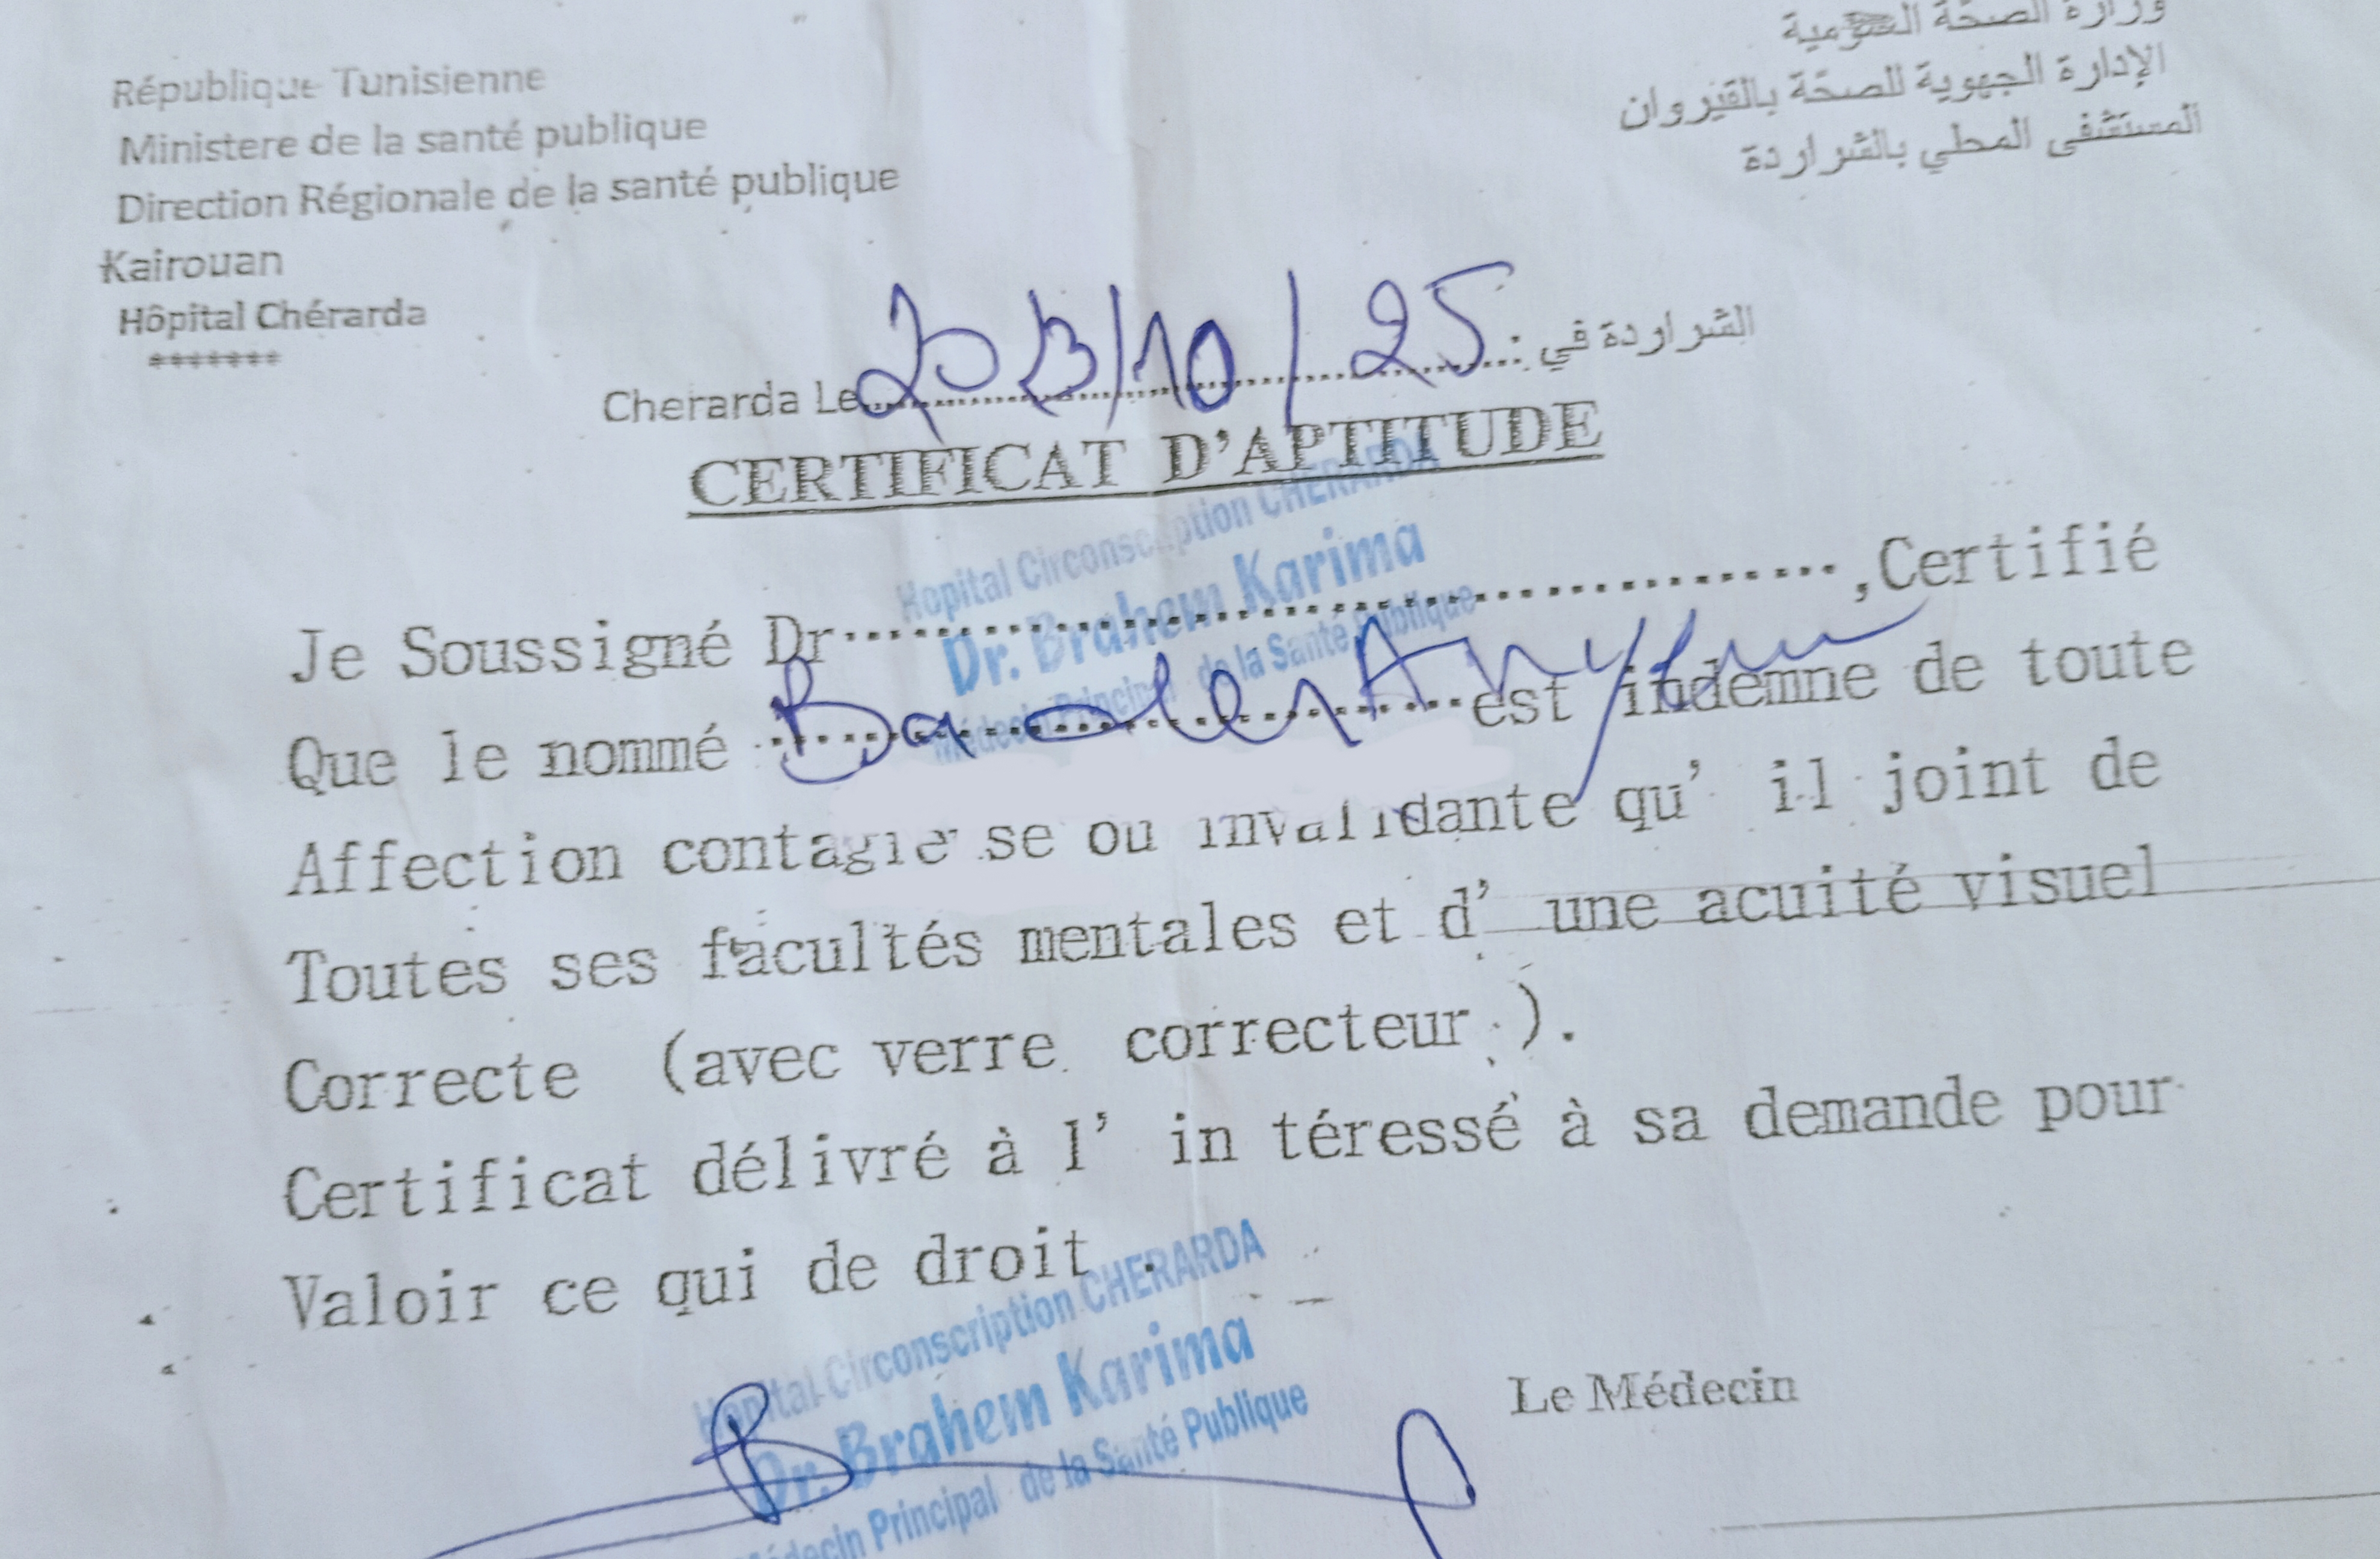 République Tunisienne
Ministere de la santé publique
Direction Régionale de la santé publique
Kairouan
Hôpital Chérarda
*******
وزارة الصحة العمومية
الإدارة الجهوية للصحة بالقيروان
المستشفى المحلي بالشراردة
Cherarda Le /10/25 الشراردة في :
CERTIFICAT D'APTITUDE
Hopital Circonscription CHERARDA
Dr. Brahem Karima
Médecin Principal de la Santé Publique
Je Soussigné Dr ,Certifié
Que le nommé est indemne de toute
Affection contagieuse ou invalidante qu' il joint de
Toutes ses facultés mentales et d' une acuité visuel
Correcte (avec verre correcteur ).
Certificat délivré à l' in téressé à sa demande pour
Valoir ce qui de droit .
Hopital Circonscription CHERARDA
Dr. Brahem Karima
Médecin Principal de la Santé Publique
Le Médecin